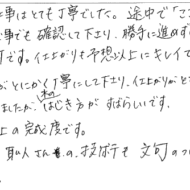 事はとても丁寧でした。途中で「こ
事でも確認して下さり、勝手に進めず
すです。仕上がりも予想以上にキレイで
がとにかく丁寧にして下さり、仕上がりがと
ましたが、木のはじき方がすばらしいです。
上の完成度です。
職人さんの、技術も文句のつ